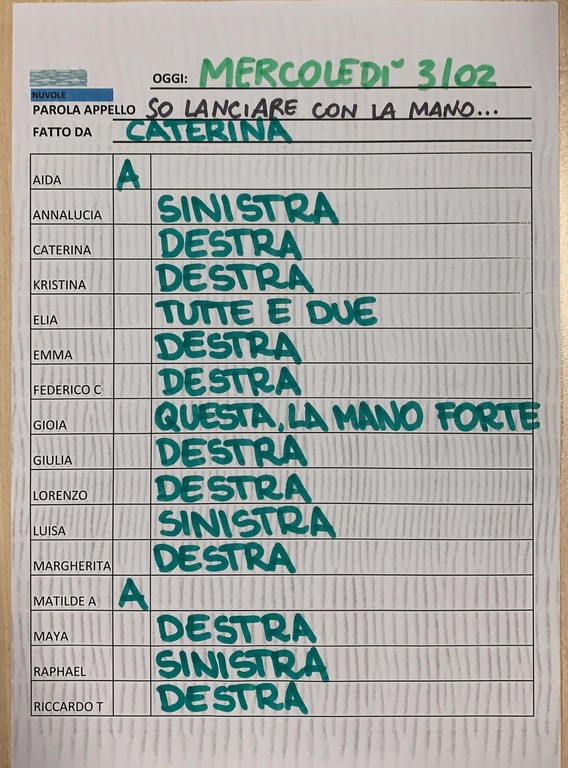 OGGI: MERCOLEDI˘ 3/02
NUVOLE
PAROLA APPELLO SO LANCIARE CON LA MANO...
FATTO DA CATERINA
AIDA A
ANNALUCIA SINISTRA
CATERINA DESTRA
KRISTINA DESTRA
ELIA TUTTE E DUE
EMMA DESTRA
FEDERICO C DESTRA
GIOIA QUESTA, LA MANO FORTE
GIULIA DESTRA
LORENZO DESTRA
LUISA SINISTRA
MARGHERITA DESTRA
MATILDE A A
MAYA DESTRA
RAPHAEL SINISTRA
RICCARDO T DESTRA